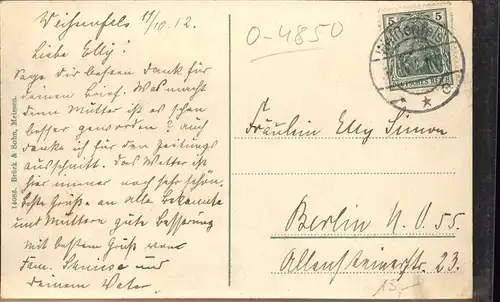 Weißenfels 11/10.12.
Liebe Elly!
Sage dir besten Dank für
deinen Brief. Was macht
denn Mutter ist es schon
besser geworden? auch
danke ich für den Zeitungs
ausschnitt. Das Wetter ist
hier immer noch sehr schön.
beste Grüße an alle Bekannte
und Muttern gute Besserung
mit bestem Gruß von
Fam. und
deinem Vater.
14085. Brück & Sohn, Meissen.
0-4850
5 5
Fräulein Elly Simon
Berlin N.O. 55
Allensteinerstr. 23.
15.-